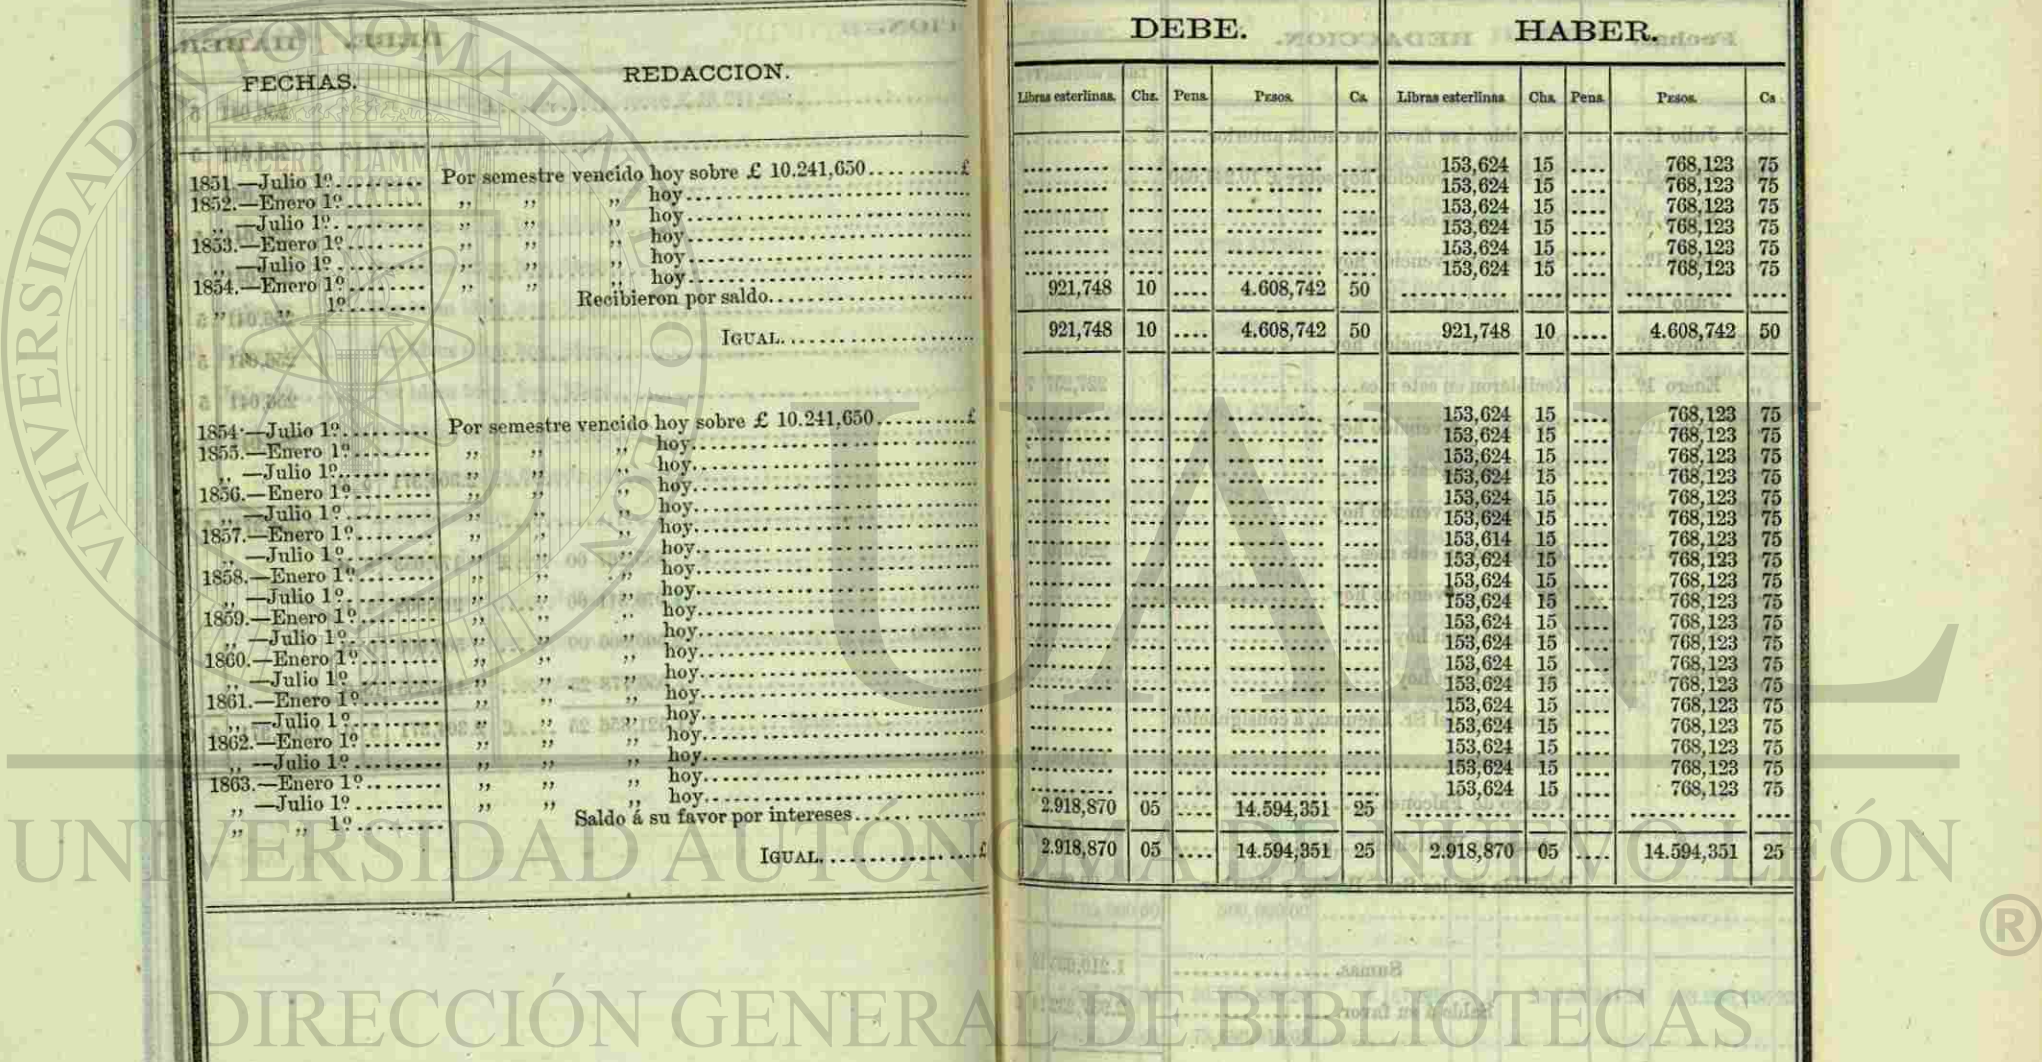 DEBE. HABER.
FECHAS. REDACCION. Libras esterlinas. Chs. Pens. Pesos. Cs. Libras esterlinas Chs. Pens. Pesos. Cs
1851.—Julio 1º......... Por semestre vencido hoy sobre £ 10.241,650..........£ .......... .... .... .......... .... 153,624 15 .... 768,123 75
1852.—Enero 1º......... ,, ,, ,, hoy.......... .......... .... .... .......... .... 153,624 15 .... 768,123 75
,, —Julio 1º......... ,, ,, ,, hoy.......... .......... .... .... .......... .... 153,624 15 .... 768,123 75
1853.—Enero 1º......... ,, ,, ,, hoy.......... .......... .... .... .......... .... 153,624 15 .... 768,123 75
,, —Julio 1º......... ,, ,, ,, hoy.......... .......... .... .... .......... .... 153,624 15 .... 768,123 75
1854.—Enero 1º......... ,, ,, ,, hoy.......... .......... .... .... .......... .... 153,624 15 .... 768,123 75
,, ,, 1º......... Recibieron por saldo.......... 921,748 10 .... 4.608,742 50 .......... .... .... .......... ....
IGUAL.......... 921,748 10 .... 4.608,742 50 921,748 10 .... 4.608,742 50
1854.—Julio 1º......... Por semestre vencido hoy sobre £ 10.241,650..........£ .......... .... .... .......... .... 153,624 15 .... 768,123 75
1855.—Enero 1º......... ,, ,, ,, hoy.......... .......... .... .... .......... .... 153,624 15 .... 768,123 75
,, —Julio 1º......... ,, ,, ,, hoy.......... .......... .... .... .......... .... 153,624 15 .... 768,123 75
1856.—Enero 1º......... ,, ,, ,, hoy.......... .......... .... .... .......... .... 153,624 15 .... 768,123 75
,, —Julio 1º......... ,, ,, ,, hoy.......... .......... .... .... .......... .... 153,624 15 .... 768,123 75
1857.—Enero 1º......... ,, ,, ,, hoy.......... .......... .... .... .......... .... 153,624 15 .... 768,123 75
—Julio 1º......... ,, ,, ,, hoy.......... .......... .... .... .......... .... 153,614 15 .... 768,123 75
1858.—Enero 1º......... ,, ,, ,, hoy.......... .......... .... .... .......... .... 153,624 15 .... 768,123 75
,, —Julio 1º......... ,, ,, ,, hoy.......... .......... .... .... .......... .... 153,624 15 .... 768,123 75
1859.—Enero 1º......... ,, ,, ,, hoy.......... .......... .... .... .......... .... 153,624 15 .... 768,123 75
,, —Julio 1º......... ,, ,, ,, hoy.......... .......... .... .... .......... .... 153,624 15 .... 768,123 75
1860.—Enero 1º......... ,, ,, ,, hoy.......... .......... .... .... .......... .... 153,624 15 .... 768,123 75
,, —Julio 1º......... ,, ,, ,, hoy.......... .......... .... .... .......... .... 153,624 15 .... 768,123 75
1861.—Enero 1º......... ,, ,, ,, hoy.......... .......... .... .... .......... .... 153,624 15 .... 768,123 75
,, —Julio 1º......... ,, ,, ,, hoy.......... .......... .... .... .......... .... 153,624 15 .... 768,123 75
1862.—Enero 1º......... ,, ,, ,, hoy.......... .......... .... .... .......... .... 153,624 15 .... 768,123 75
,, —Julio 1º......... ,, ,, ,, hoy.......... .......... .... .... .......... .... 153,624 15 .... 768,123 75
1863.—Enero 1º......... ,, ,, ,, hoy.......... .......... .... .... .......... .... 153,624 15 .... 768,123 75
,, —Julio 1º......... ,, ,, ,, hoy.......... .......... .... .... .......... .... 153,624 15 .... 768,123 75
,, ,, 1º......... Saldo á su favor por intereses.......... 2.918,870 05 .... 14.594,351 25 .......... .... .... .......... ....
IGUAL..........£ 2.918,870 05 .... 14.594,351 25 2.918,870 05 .... 14.594,351 25
UNIVERSIDAD AUTONOMA DE NUEVO LEON
UANL
UNIVERSIDAD AUTÓNOMA DE NUEVO LEÓN
®
DIRECCIÓN GENERAL DE BIBLIOTECAS